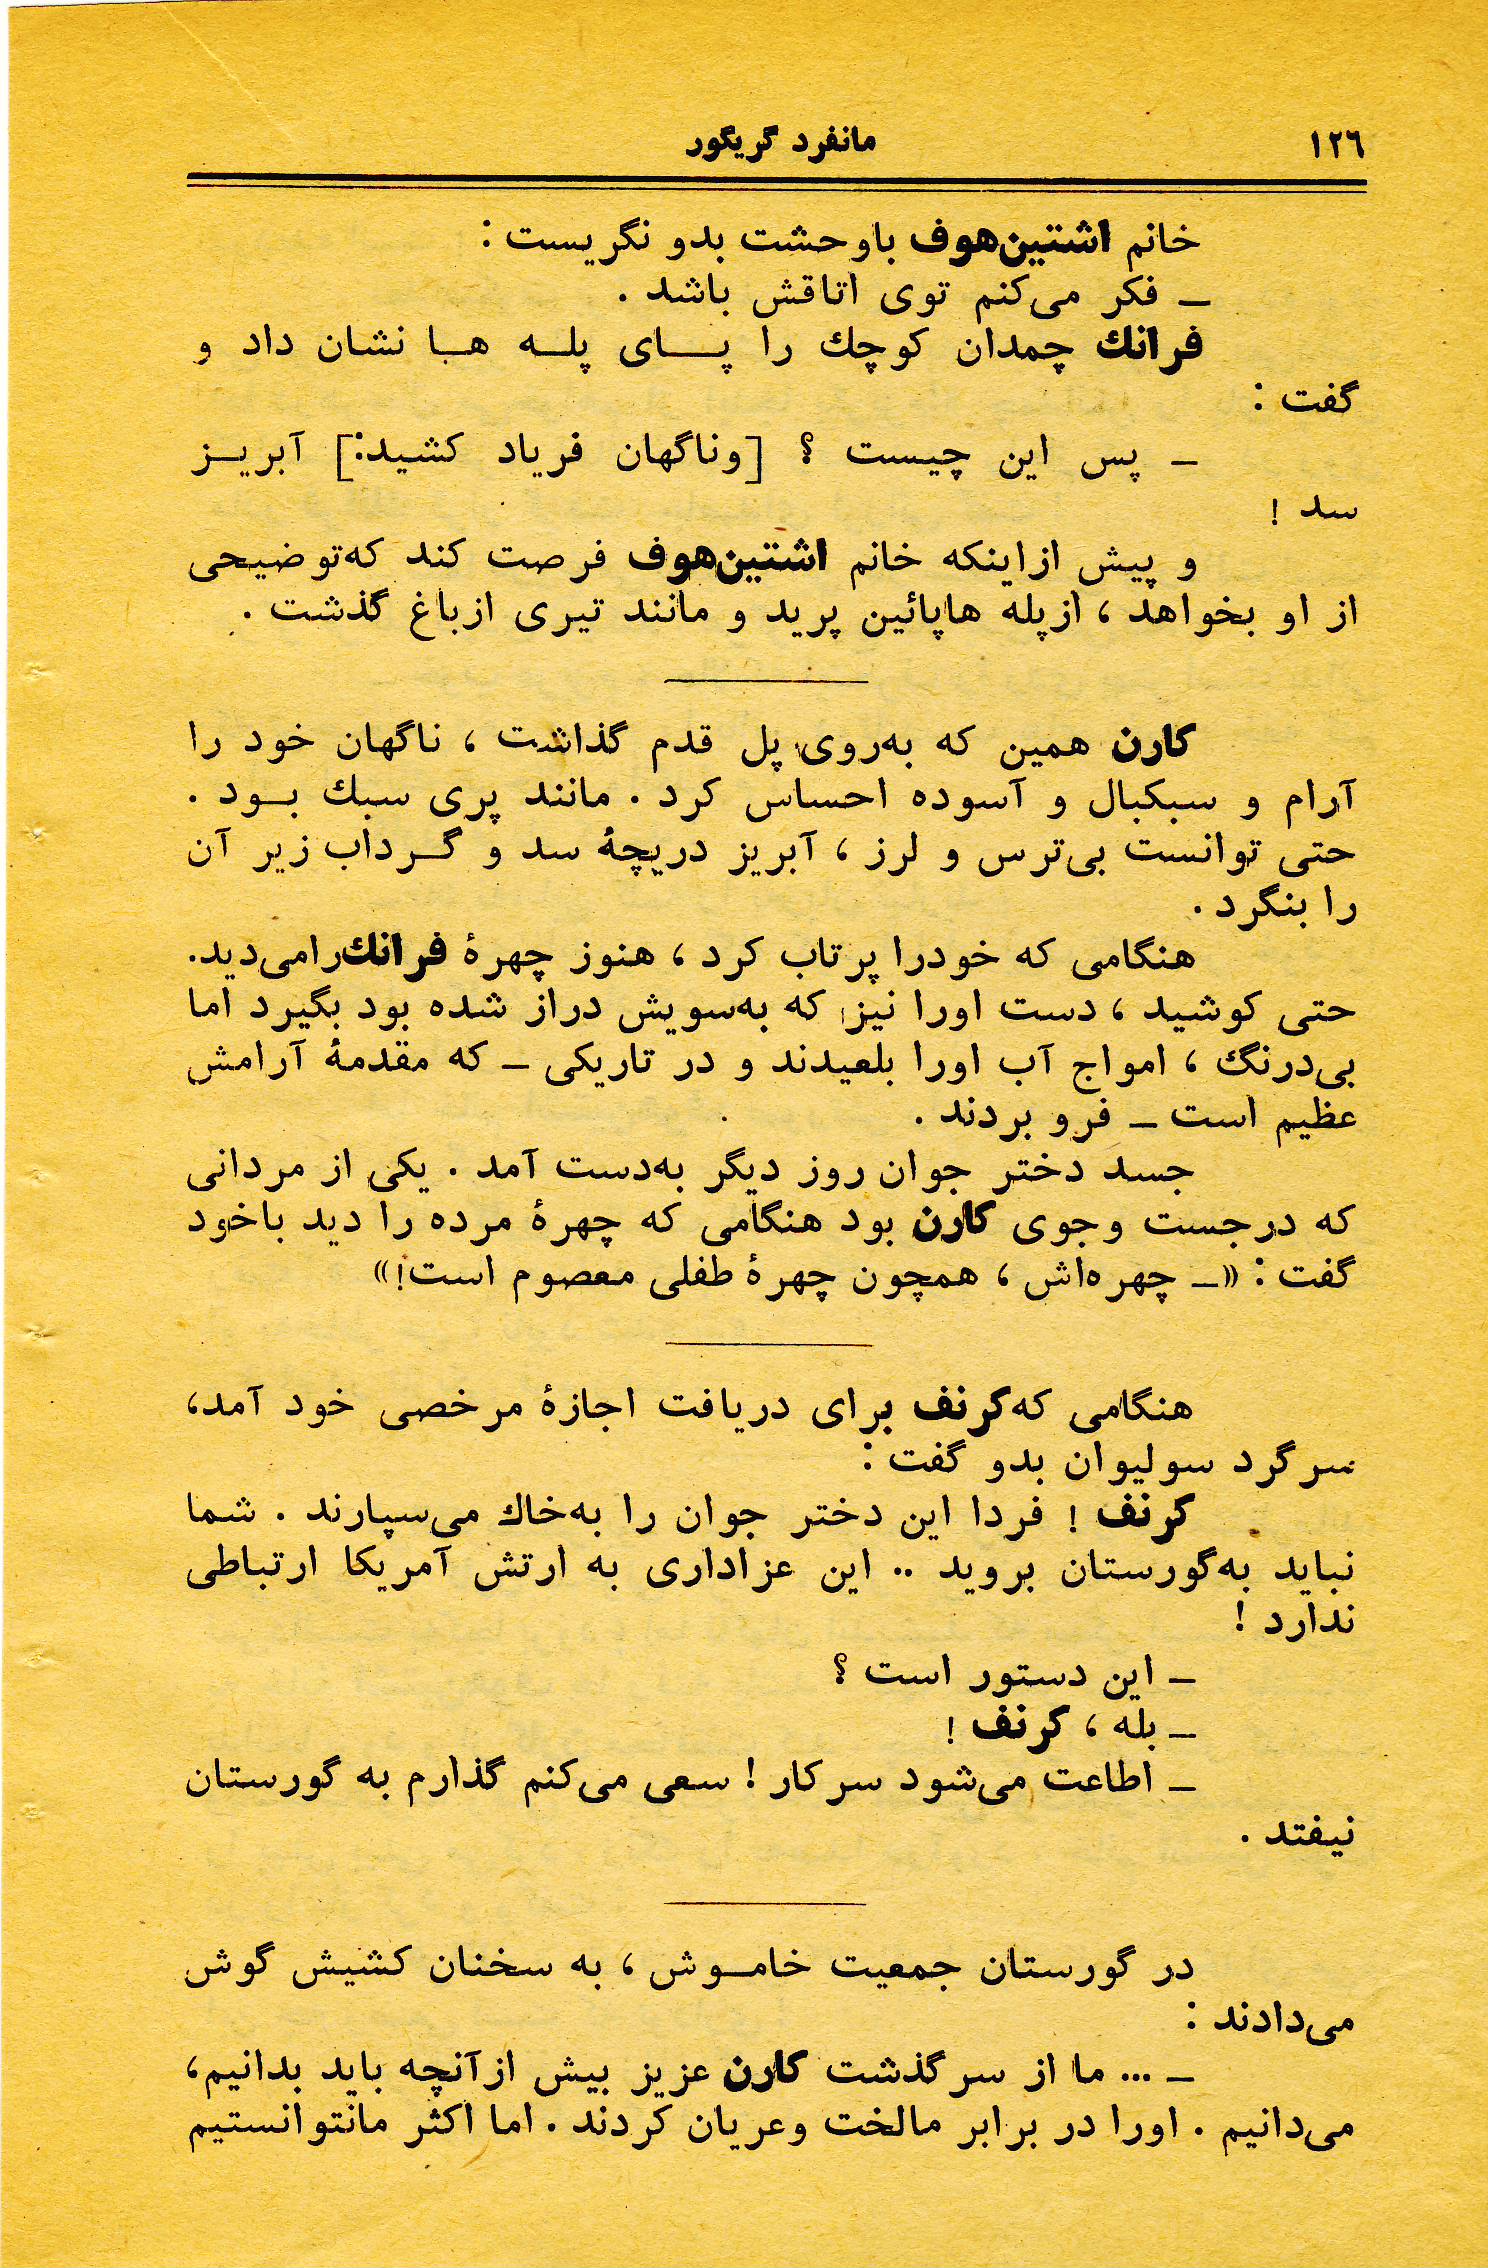 ١٢٦
مانفرد گریگور
خانم اشتین‌هوف باوحشت بدو نگریست :
ـ فکر می‌کنم توی اتاقش باشد .
فرانك چمدان کوچك را پـــای پلــه هــا نشان داد و
گفت :
ـ پس این چیست ؟ [وناگهان فریاد کشید:] آبریــز
سد !
و پیش ازاینکه خانم اشتین‌هوف فرصت کند که‌توضیحی
از او بخواهد ، ازپله هاپائین پرید و مانند تیری ازباغ گذشت .
کارن همین که به‌روی پل قدم گذاشت ، ناگهان خود را
آرام و سبکبال و آسوده احساس کرد . مانند پری سبك بــود .
حتی توانست بی‌ترس و لرز ، آبریز دریچهٔ سد و گــرداب زیر آن
را بنگرد .
هنگامی که خودرا پرتاب کرد ، هنوز چهرهٔ فرانك‌رامی‌دید.
حتی کوشید ، دست اورا نیز که به‌سویش دراز شده بود بگیرد اما
بی‌درنگ ، امواج آب اورا بلعیدند و در تاریکی ـ که مقدمهٔ آرامش
عظیم است ـ فرو بردند .
جسد دختر جوان روز دیگر به‌دست آمد . یکی از مردانی
که درجست وجوی کارن بود هنگامی که چهرهٔ مرده را دید باخود
گفت : «ـ چهره‌اش ، همچون چهرهٔ طفلی معصوم است!»
هنگامی که‌کرنف برای دریافت اجازهٔ مرخصی خود آمد،
سرگرد سولیوان بدو گفت :
کرنف ! فردا این دختر جوان را به‌خاك می‌سپارند . شما
نباید به‌گورستان بروید .. این عزاداری به ارتش آمریکا ارتباطی
ندارد !
ـ این دستور است ؟
ـ بله ، کرنف !
ـ اطاعت می‌شود سرکار ! سعی می‌کنم گذارم به گورستان
نیفتد .
در گورستان جمعیت خامــوش ، به سخنان کشیش گوش
می‌دادند :
ـ ... ما از سرگذشت کارن عزیز بیش ازآنچه باید بدانیم،
می‌دانیم . اورا در برابر مالخت وعریان کردند . اما اکثر مانتوانستیم